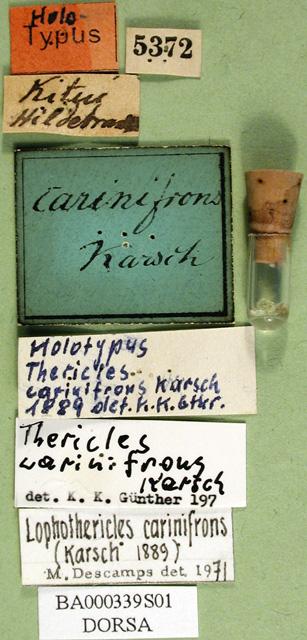 Holo-
Typus
5372
Kitui
Hildebrandt
carinifrons
Karsch
Holotypus
Thericles
carinifrons Karsch
1889 det. K. K. Gthr.
Thericles
carinifrons
Karsch
det. K. K. Günther 197
Lophothericles carinifrons
(Karsch 1889)
M. Descamps det. 1971
BA000339S01
DORSA